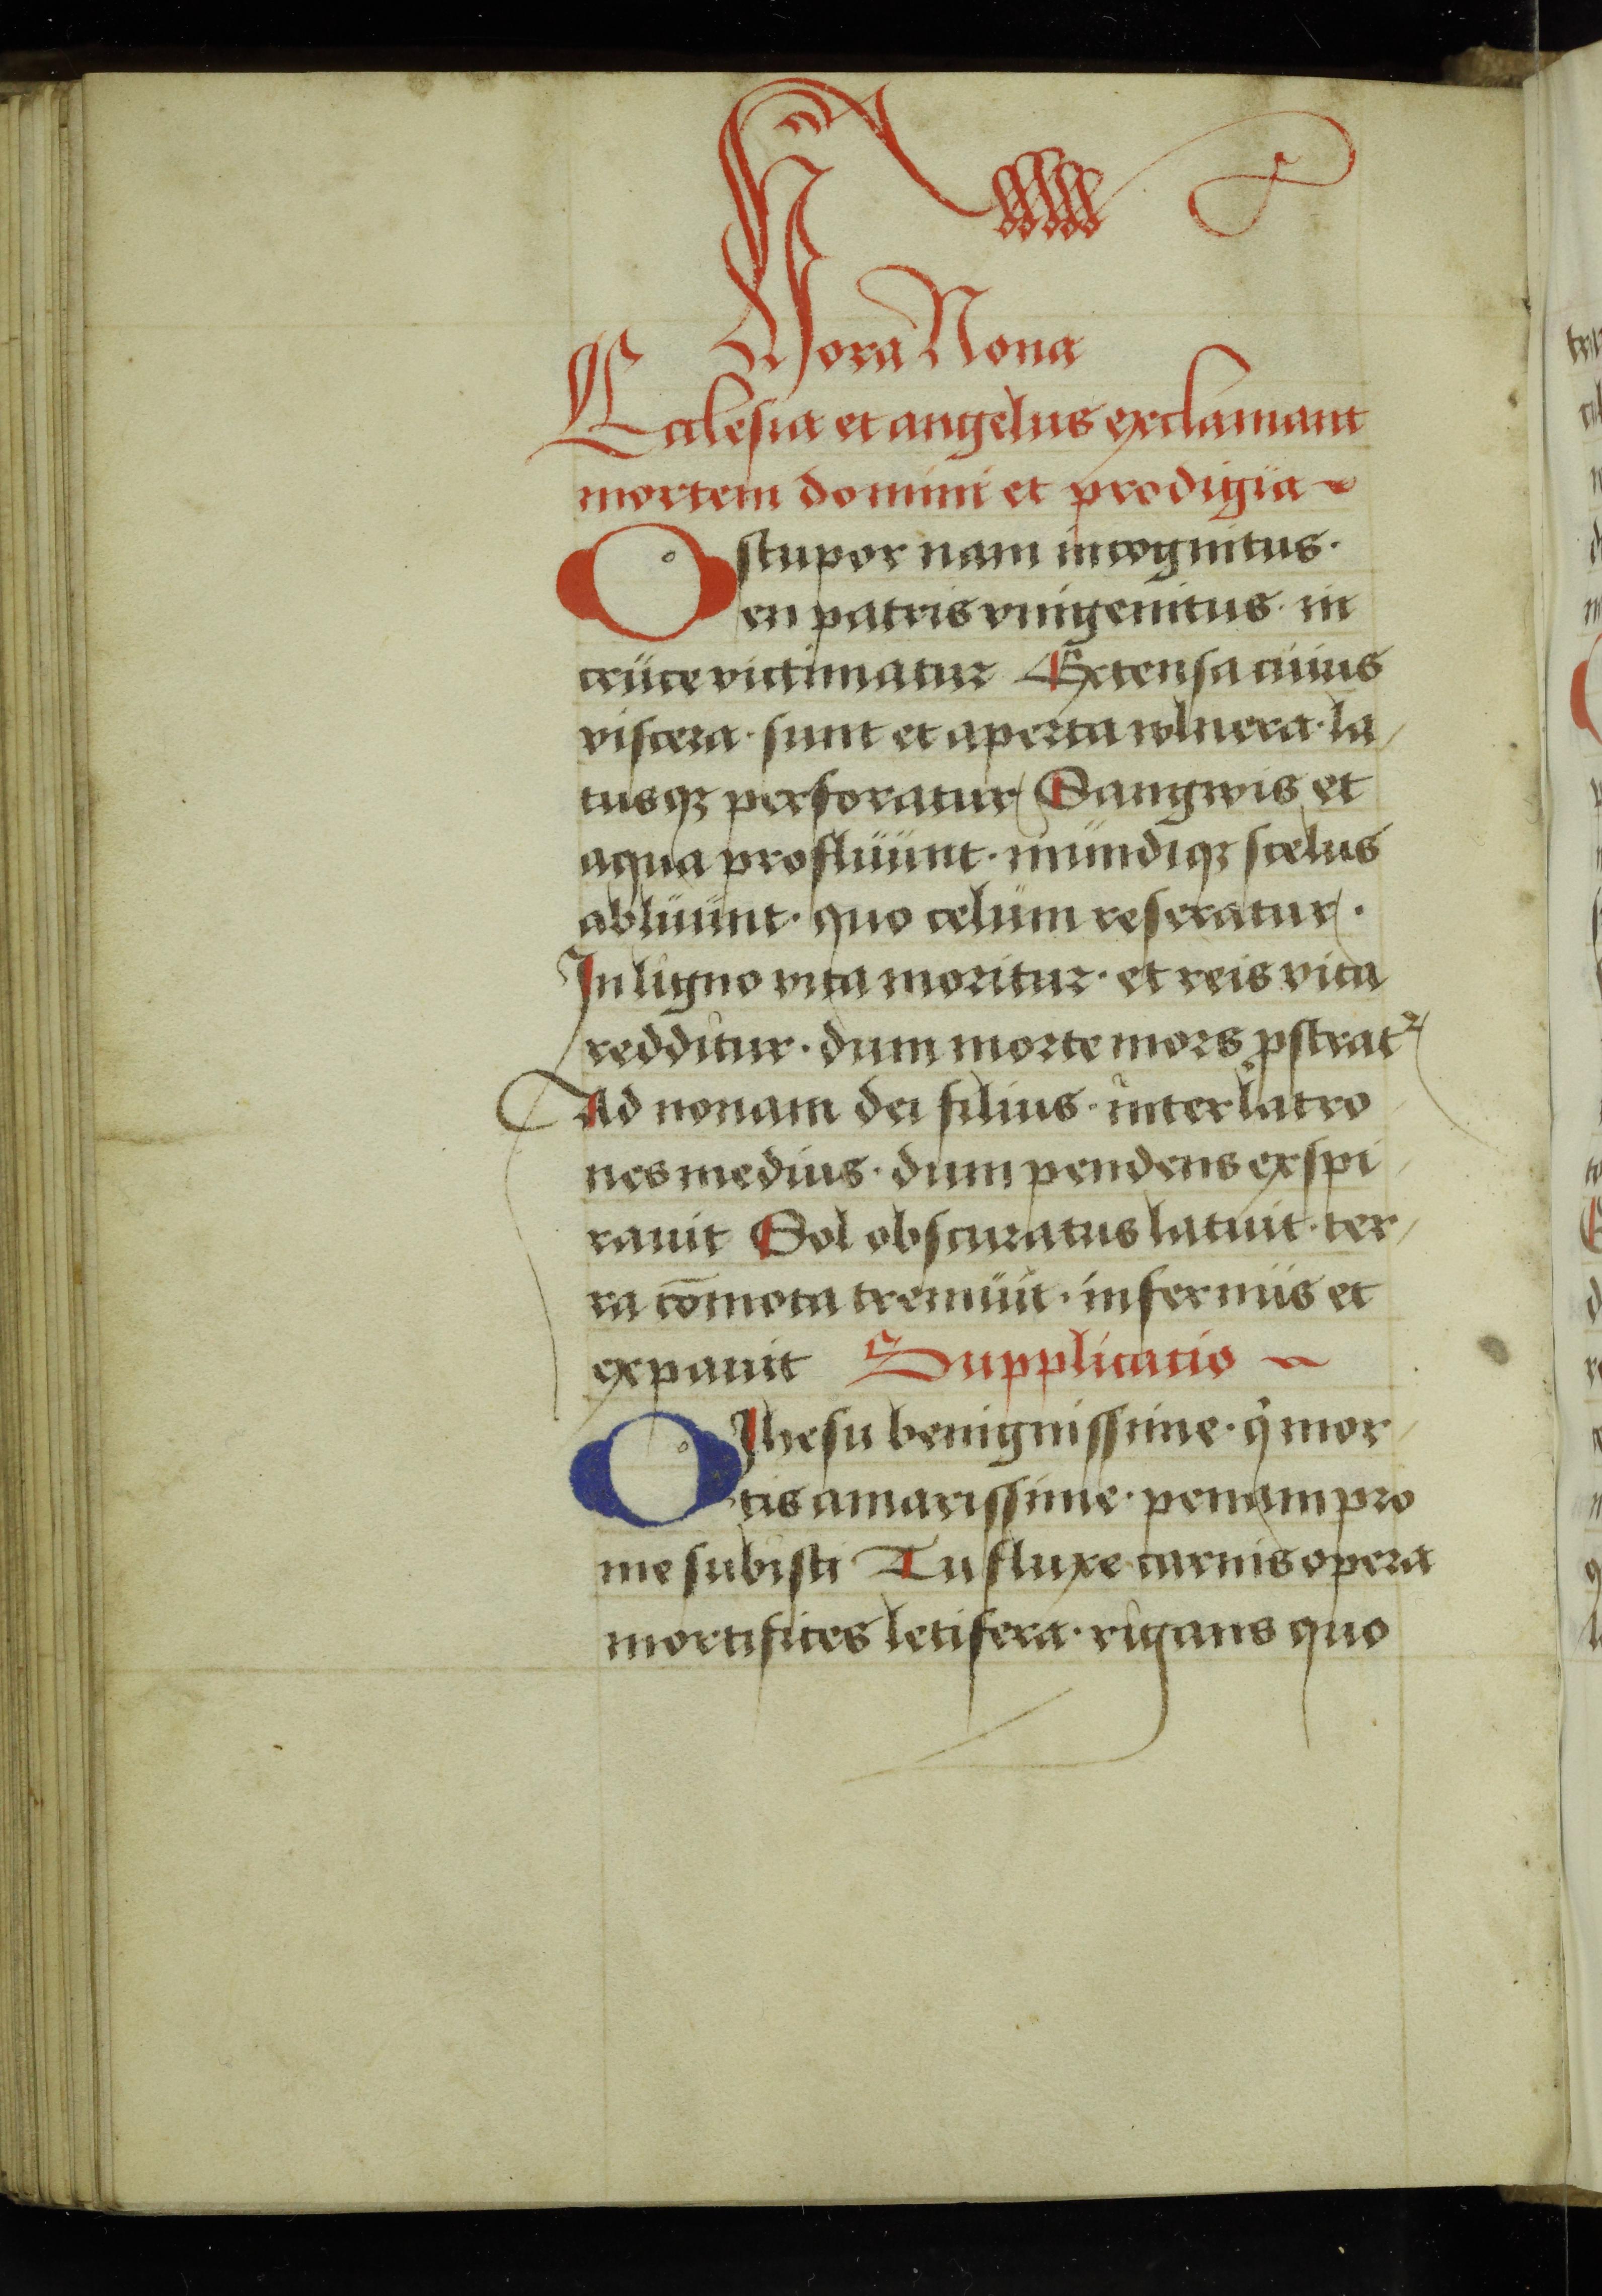 Hora Nona
Ecclesia et angelus exclamant
mortem domini et prodigia
O stupor nam incognitus·
en patris vnigenitus· in
cruce victimatur Extensa cuius
viscera· sunt et aperta wlnera· la
tusqꝫ perforatur Sangwis et
aqua profluunt· mundiqꝫ scelus
abluunt· quo celum reseratur·
In ligno vita moritur· et reis vita
redditur· dum morte mors ꝓstrat᷑
Ad nonam dei filius· inter latro
nes medius· dum pendens exspi
rauit Sol obscuratus latuit· ter
ra cōmota tremuit· infernus et
expauit Supplicatio
O Ihesu benignissime· qͥ mor
tis amarissime· penam pro
me subisti Tu fluxe carnis opera
mortifices letifera· rigans quo